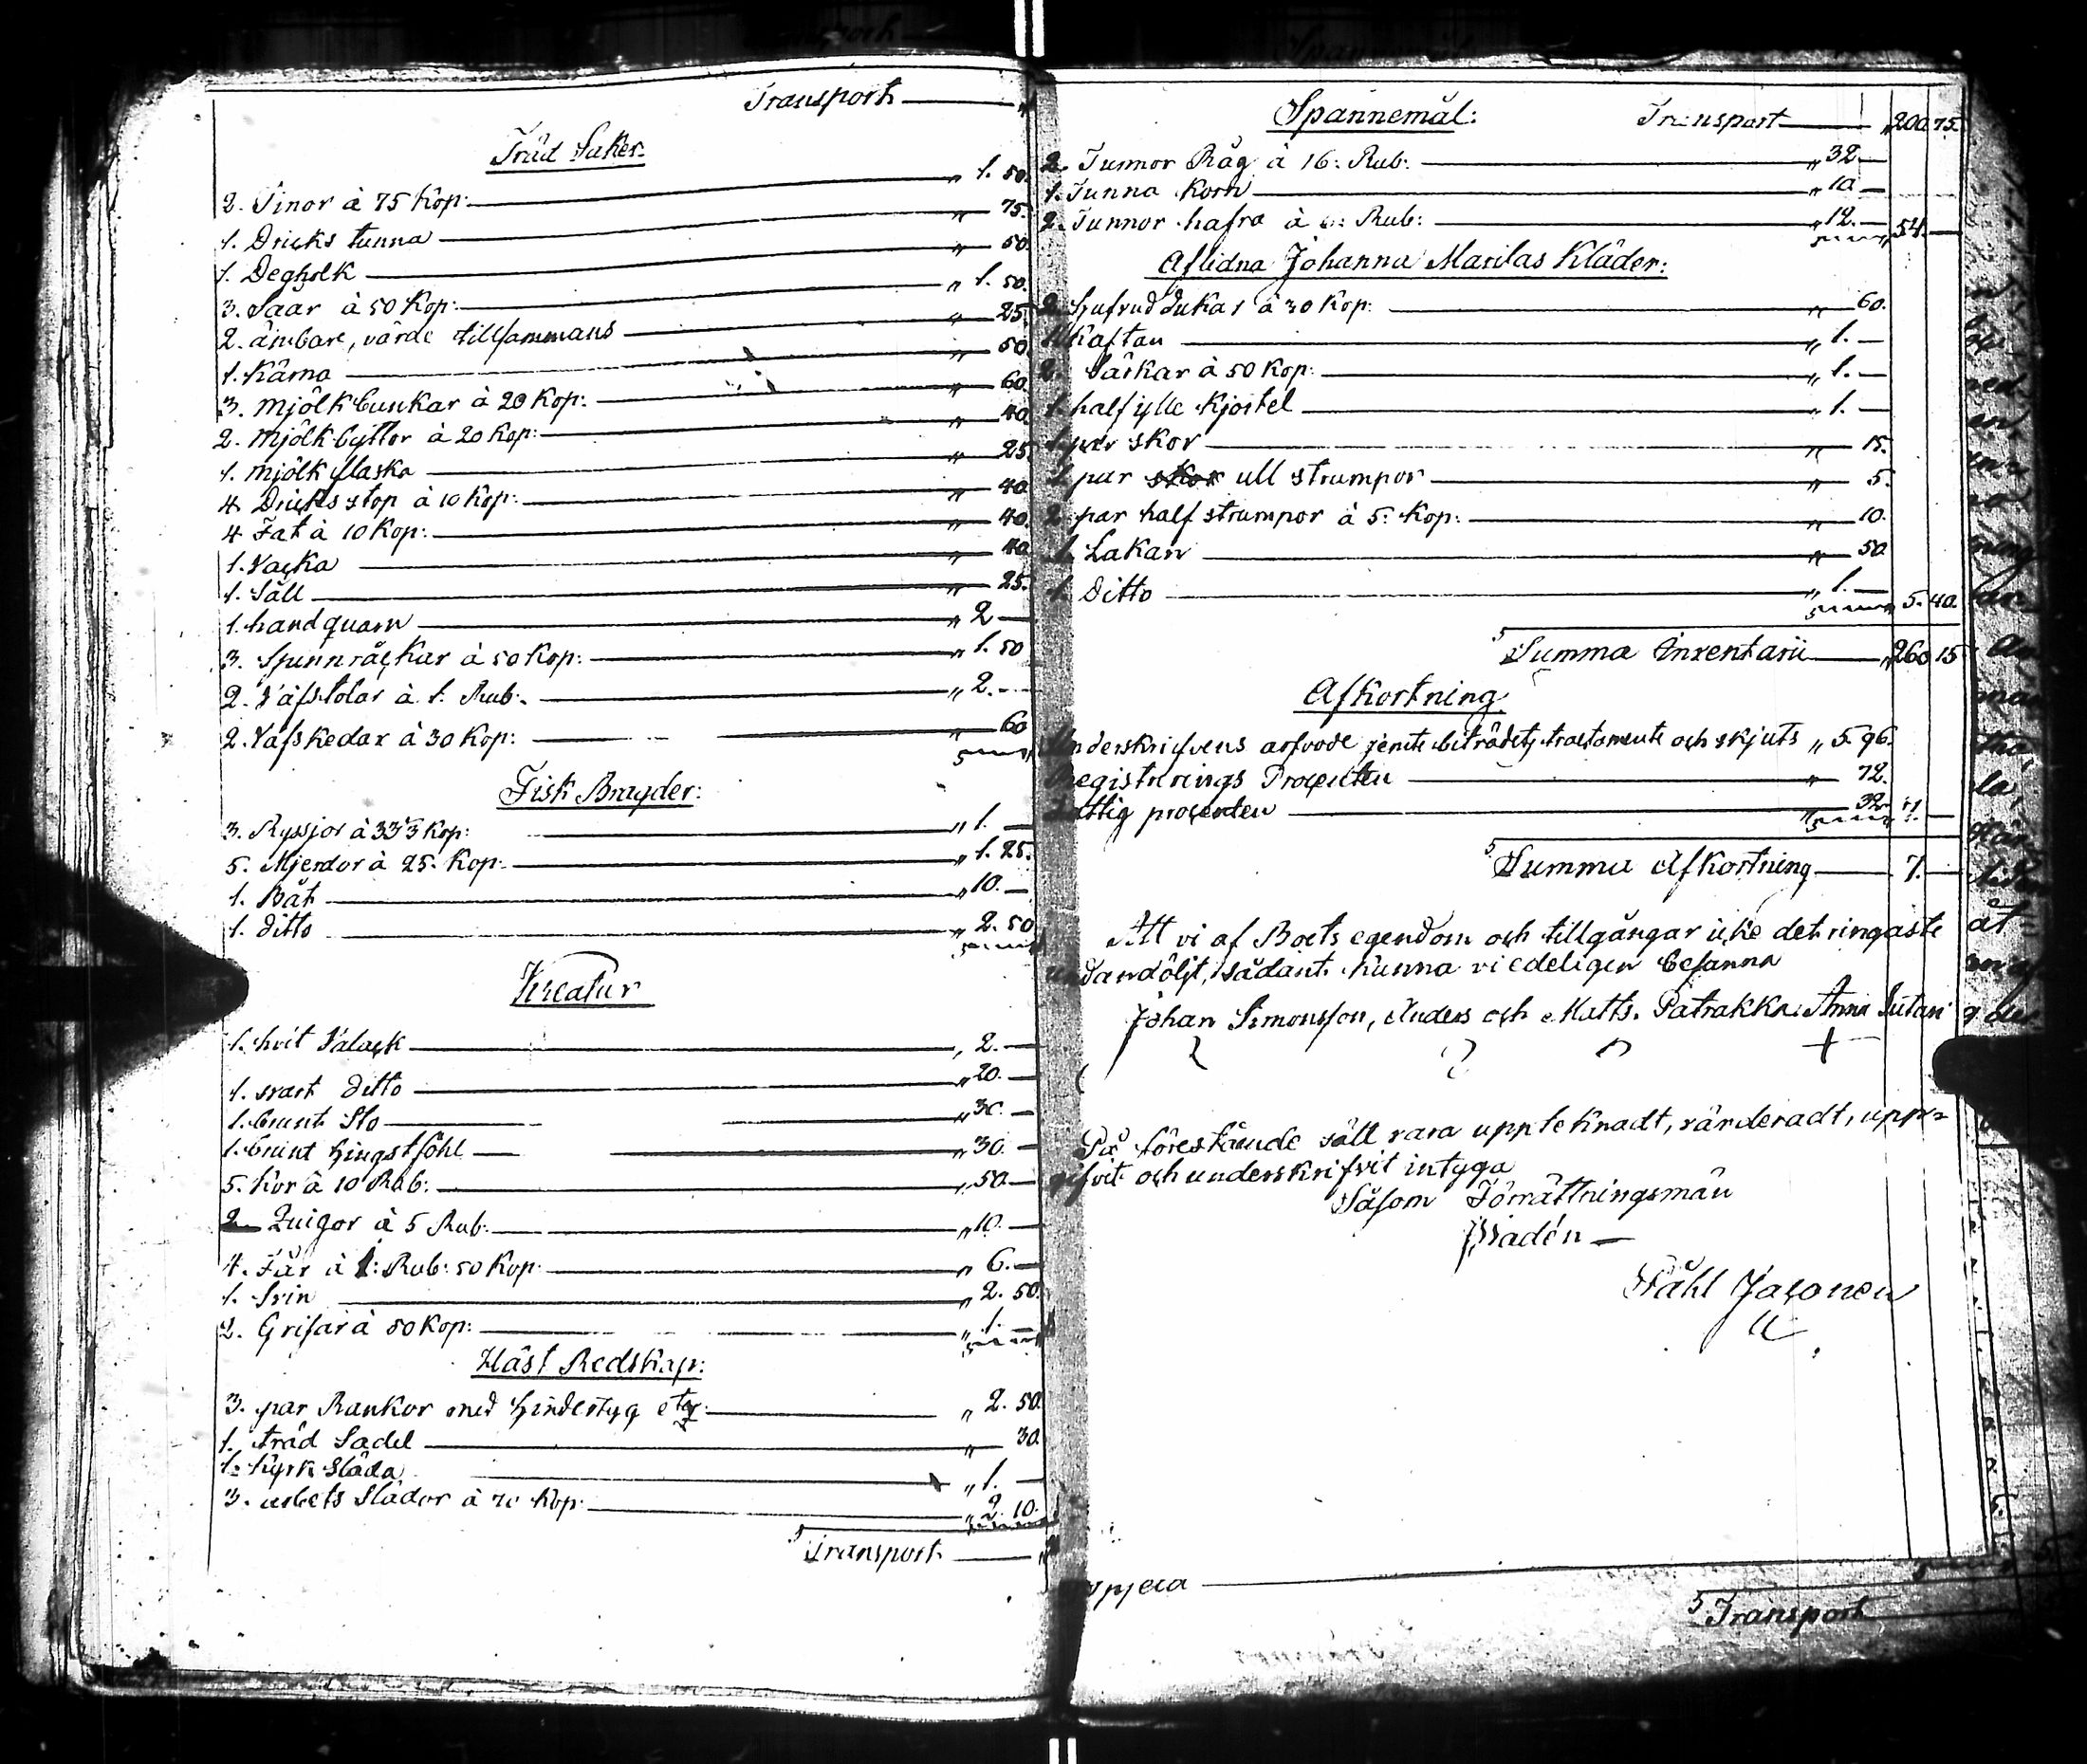 Transport „
Träd Saker:
2. Tinor à 75 Kop: „ 1. 50.
1. Dricks tunna „ 75.
1. Degholk „ 50.
3. Saar à 50 Kop: „ 1. 50.
2. ämbare, värde tillsammans „ 25.
1. Kärna „ 50.
3. Mjölk bunkar à 20 Kop: „ 60.
2. Mjölk byttor à 20 Kop: „ 40.
1. Mjölk flaska „ 25.
4 Dricks stop à 10 Kop: „ 40.
4 Fat à 10 Kop: „ 40.
1. Vacka „ 40.
1. Såll „ 25.
1. handquarn „ 2 —
3. Spinnråckar à 50 Kop: „ 1. 50
2. Väfstolar à 1. Rub. „ 2. —
2. Väfskedar à 30 Kop: „ 60
Fisk Bragder:
3. Ryssjor à 33⅓ Kop: „ 1. —
5. Mjerdor à 25. Kop: „ 1. 25.
1. Båt „ 10. —
1. ditto „ 2. 50
Kreatur
1. hvit Valack „ 2. —
1. svart ditto „ 20. —
1. brunt Sto „ 30. —
1. brunt Hingstföhl „ 30. —
5. Kor à 10 Rub: „ 50. —
2 Quigor à 5 Rub: „ 10. —
4. Får à 1: Rub: 50 Kop: „ 6. —
1. Svin „ 2. 50.
2. Grisar à 50 Kop: „ 1. —
Häst Redskap:
3. par Rankor med Hindertyg etc: „ 2. 50.
1. träd Sadel „ 30.
1. Kyrk Släda „ 1. —
3. arbets Slädor à 70 Kop: „ 2. 10.
Transport „
Spannemål: Transport „ 200 75.
2. Tunnor Råg à 16: Rub: „ 32 —
1. Tunna Korn „ 10 —
2. Tunnor hafra à 6: Rub: „ 12. — „ 54. —
Aflidna Johanna Marilas Kläder:
2. Hufvud dukar à 30 Kop: „ 60.
1 Kaftan „ 1. —
2. Särkar à 50 Kop: „ 1. —
1. half ylle Kjortel „ 1. —
1 par skor „ 15.
1 par skor ull strumpor „ 5.
2 par half strumpor à 5. Kop: „ 10.
1. Lakan „ 50
1. Ditto „ 1. — „ 5. 40.
Summa Inventarii „ 260 15
Afkortning
Underskrifvens arfvode jemte biträdets tractamente och skjuts „ 5. 96.
Registrerings Procenten „ 72.
Fattig procenten „ 32. 7. —
Summa Afkortning 7. —
Att vi af Boets egendom och tillgångar icke det ringaste
undandöljt, sådant kunna vi edeligen besanna
Johan Simonsson, Anders och Matts. Patrakka. Anna Sutari
+
På förestående sätt vara uppteknadt, värderadt, upp=
gifvit och underskrifvit intyga
Såsom Förrättningsmän
Wadén
Påhl Jaconen
Transport